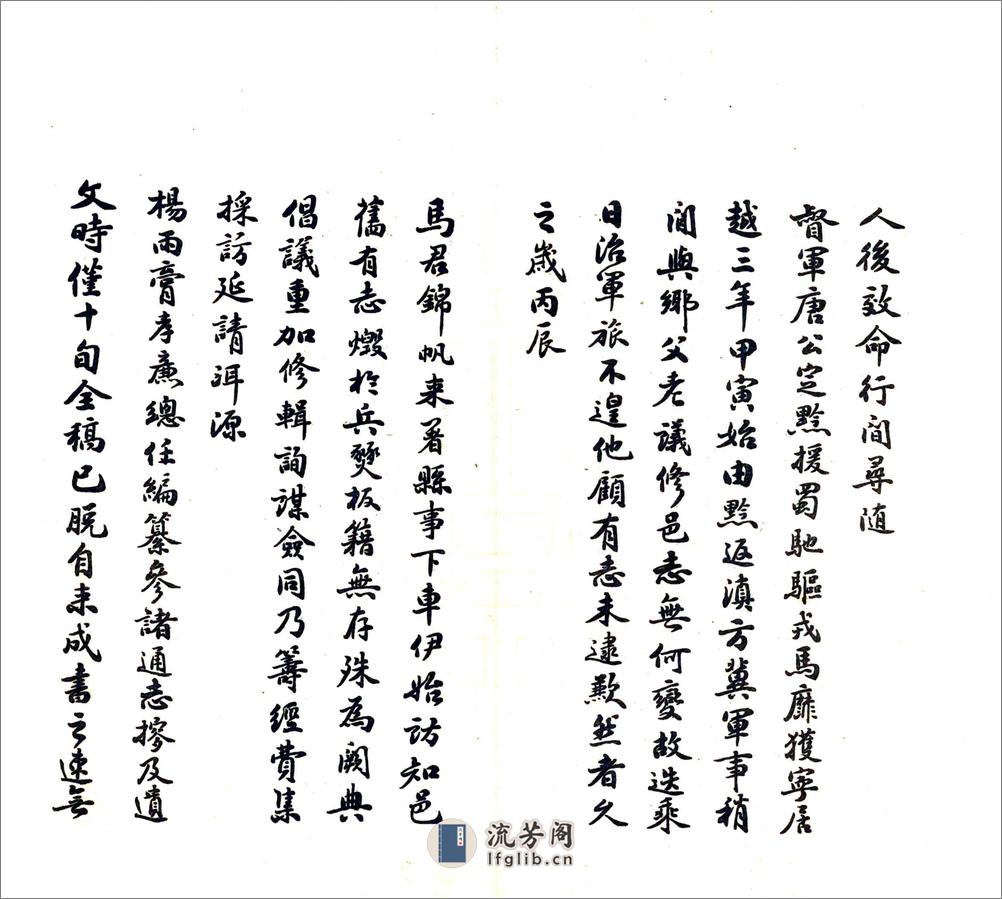 人後效命行間尋随
督軍唐公定黔援蜀馳驅戎馬靡獲寧居
越三年甲寅始由黔返滇方冀軍事稍
閒與鄉父老議修邑志無何變故迭乘
日治軍旅不遑他顧有志未逮歉然者久
之歲丙辰
馬君錦帆来署縣事下車伊始訪知邑
舊有志燬於兵燹板籍無存殊為闕典
倡議重加修輯詢謀僉同乃籌經費集
採訪延請洱源
楊雨膏孝廉總任編纂參諸通志搜及遺
文時僅十旬全稿已脱自来成書之速無
流芳阁
lfglib.cn